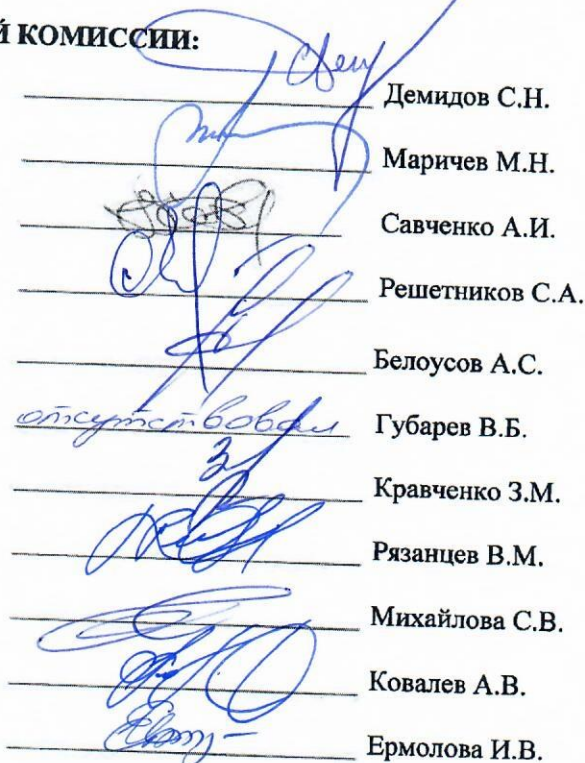 Й КОМИССИИ:
Демидов С.Н.
Маричев М.Н.
Савченко А.И.
Решетников С.А.
Белоусов А.С.
отсутствовал Губарев В.Б.
Кравченко З.М.
Рязанцев В.М.
Михайлова С.В.
Ковалев А.В.
Ермолова И.В.